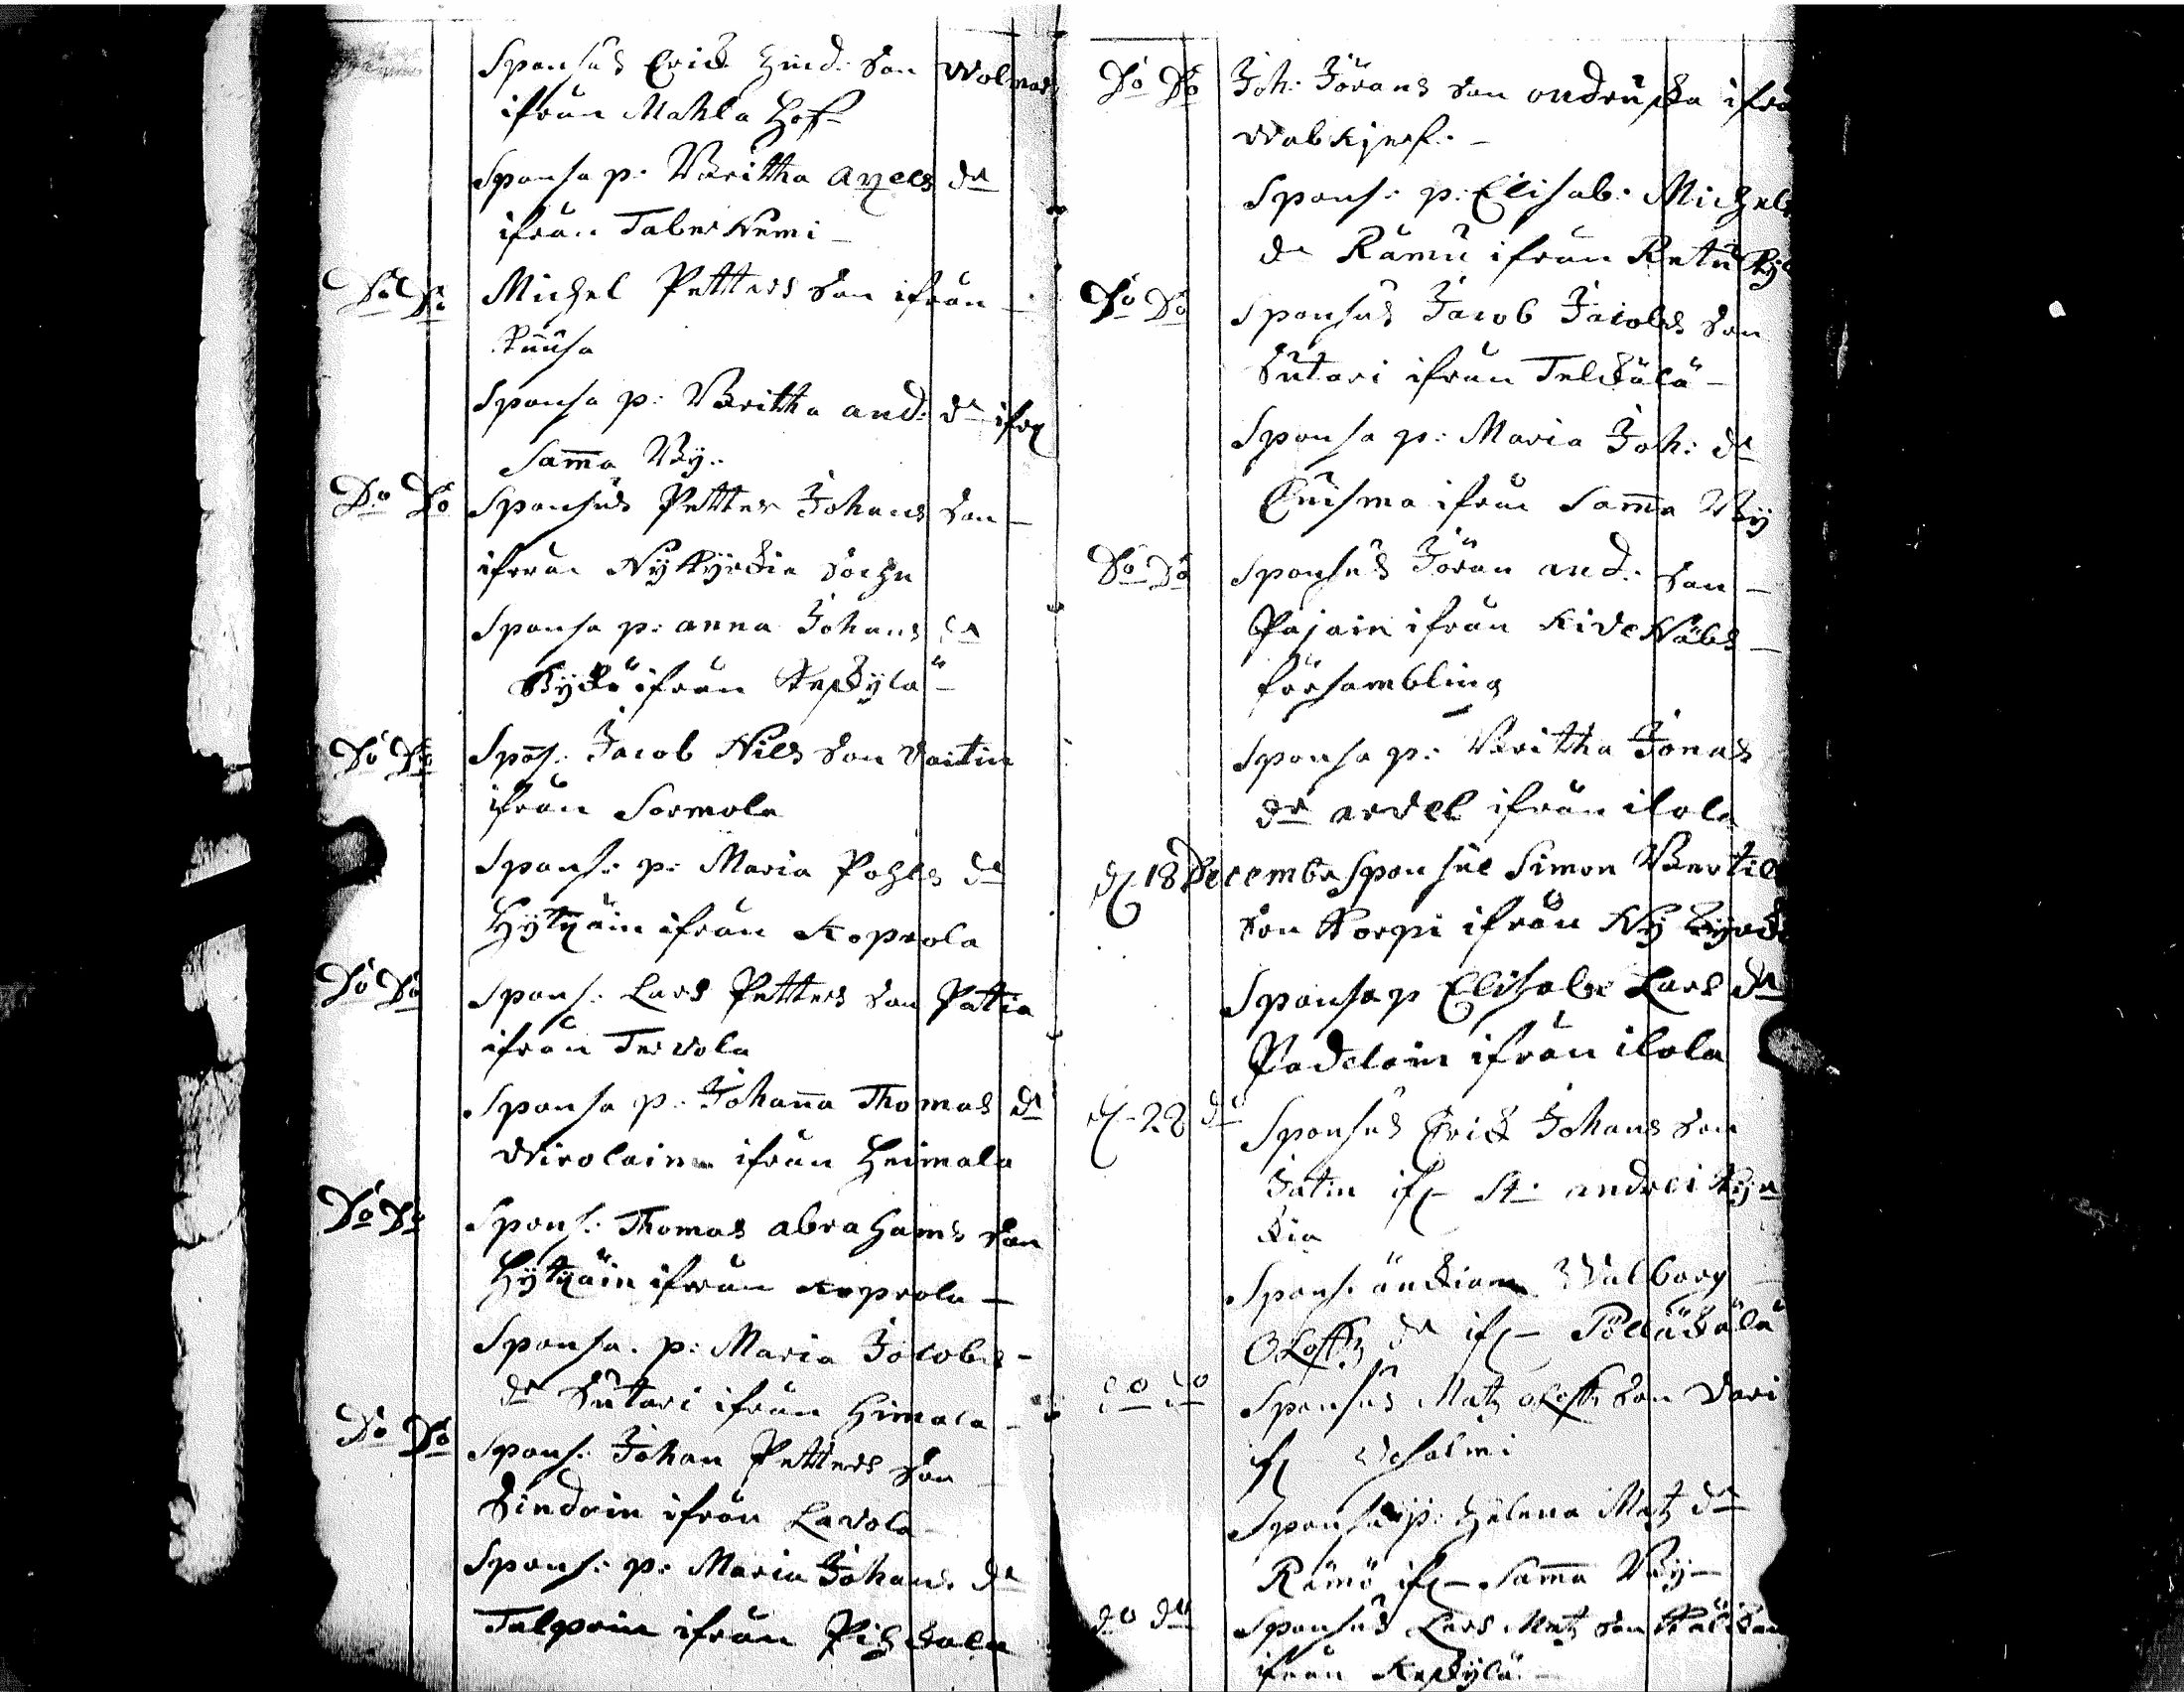 Sponsus Erick Hind: Son Wolmar
ifrån Mahla Hof
Sponsa p: Britha Axels dr
ifrån Taber Kemi
Do Do Michel Petters Son ifrån
Kuusa
Sponsa p: Britha And: dr ifrn
Samma By.
Do Do Sponsus Petter Johans Son
ifrån Nykyrckia Sochn
Sponsa p: Anna Johans dr
ifrån Kepkylä
Do Do Spons: Jacob Nils Son Vaitin
ifrån Sormola
Spons: p: Maria Pohls dr
Hytyäin ifrån Koprola
Do Do Spons: Lars Petters Son Patia
ifrån Tervola
Sponsa p: Johanna Thomas dr
Wirolain ifrån Heimala
Do Do Spons: Thomas Abrahams Son
Hytyäin ifrån Koprola
Sponsa. p: Maria Jacobs
dr Sutari ifrån Himala
Do Do Spons: Johan Petters Son
ifrån Lavola
Spons: p: Maria Johans dr
Talpoin ifrån Pihkala
Do Do Joh: Jörans Son Ondruska ifrå
Spons: p: Elisab: Michels
dr Rämü ifrån Retu Ky
Do Do Sponsus Jacob Jacobs Son
Sutari ifrån Telckälä
Sponsa p: Maria Joh: dr
Cuisma ifrån Samma By
Do Do Sponsus Jöran And: Son
Pajain ifrån KiveNäbs
försambling
Sponsa p: Britha Jonas
dr Arvel ifrån ilola
d 18 Decembr Sponsus Simon Bertil
Son Korpi ifrån Ny Kyrck
Sponsa p Elisabe Lars dr
Padelain ifrån ilola
d 28 do Sponsus Erick Johans Son
Jatin if St. Andreæ Kyr
kia
Spons. änckian Walborg
Oloffz dr if Pöllackälä
do do Sponsus Matz Oloffz Son Vari
if Wesalmi
Sponsa p: Helena Matz dr
Rämö if Samma By
do do Sponsus Lars Matz Son
ifrån Kepkylä